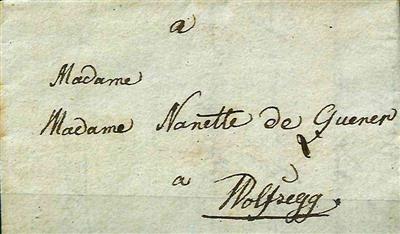 a
Madame
Madame Nanette de Guerer
a
Wolfsegg.